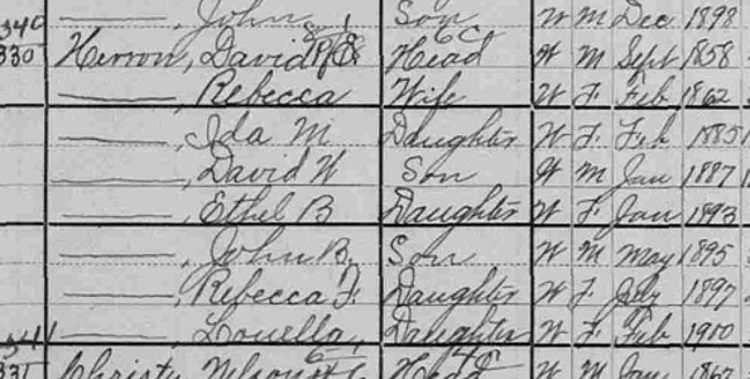 ——, John Son W M Dec 1898
340
330 Herron, David Head W M Sept 1858
——, Rebecca Wife W F Feb 1862
——, Ida M Daughter W F Feb 1885
——, David W Son W M Jan 1887
——, Ethel B Daughter W F Jan 1893
——, John B. Son W M May 1895
——, Rebecca F. Daughter W F July 1897
——, Louella, Daughter W F Feb 1900
341
331 Christy Nelson Head W M Jan